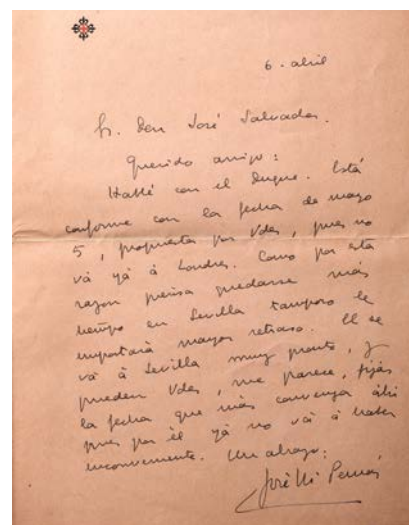 6 - abril
Sr. Don José Salvador.
Querido amigo:
Hablé con el Duque. Está
conforme con la fecha de mayo
5, propuesta por Vdes, pues no
vá yá à Londres. Como por esta
razon piensa quedarse más
tiempo en Sevilla tampoco le
importaría mayor retraso. El se
vá à Sevilla muy pronto, y
pueden Vdes, me parece, fijar
la fecha que más convenga ahi
pues por èl yá no vá à haber
inconveniente. Un abrazo:
José Mª Pemán